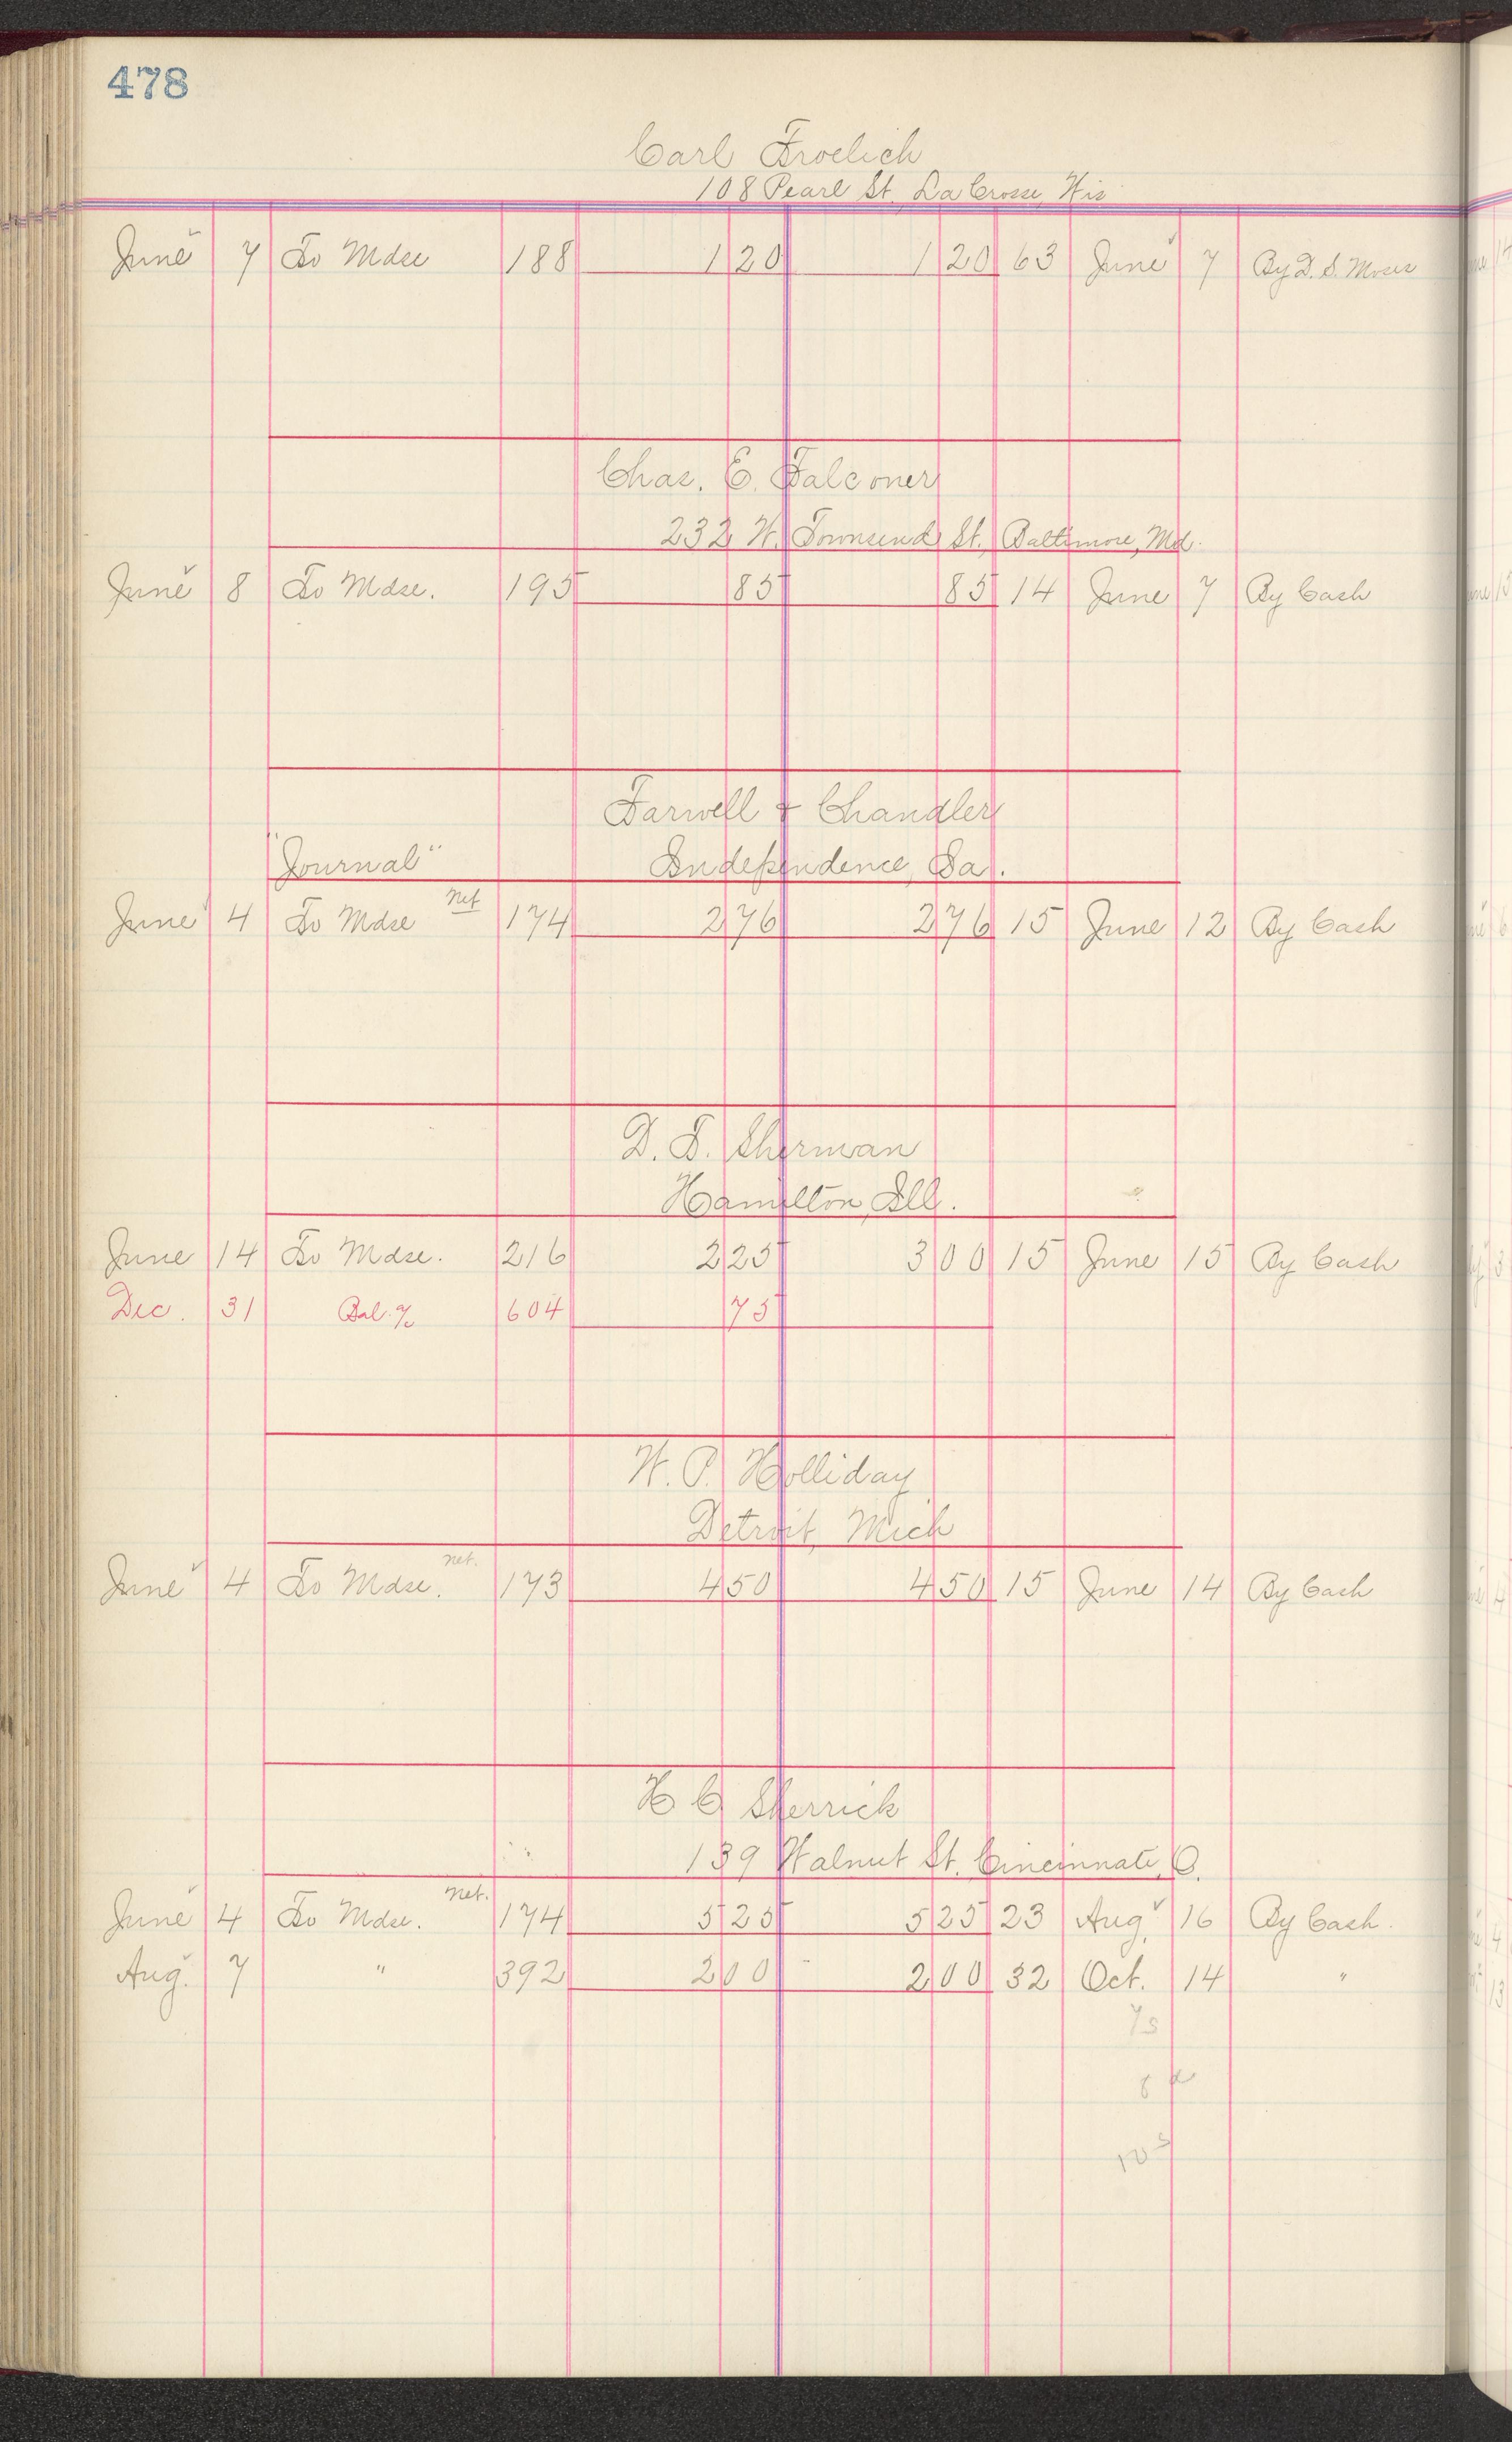 478
Carl Froelich
108 Pearl St. La Crosse, Wis
June 7 To Mdse 188 1 20 1 20 63 June 7 By D. S. Moses
Chas. E. Falconer
232 W. Townsend St., Baltimore, Md.
June 8 To Mdse. 195 85 85 14 June 7 By Cash
Farwell & Chandler
"Journal" Independence, Ia.
June 4 To Mdse net 174 2 76 2 76 15 June 12 By Cash
D. F. Sherman
Hamilton, Ill.
June 14 To Mdse. 216 2 25 3 00 15 June 15 By Cash
Dec. 31 Bal. % 604 75
W. P. Holliday
Detroit, Mich
June 4 To Mdse. net. 173 4 50 4 50 15 June 14 By Cash
H C Sherrick
139 Walnut St. Cincinnati, O.
June 4 To Mdse. net. 174 5 25 5 25 23 Aug. 16 By Cash.
Aug. 7 " 392 2 00 2 00 32 Oct. 14 "